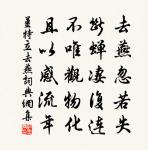 去燕忽若失
斷蟬凄復連
不唯觀物化
且以感流年
姜特立去燕詞典網集